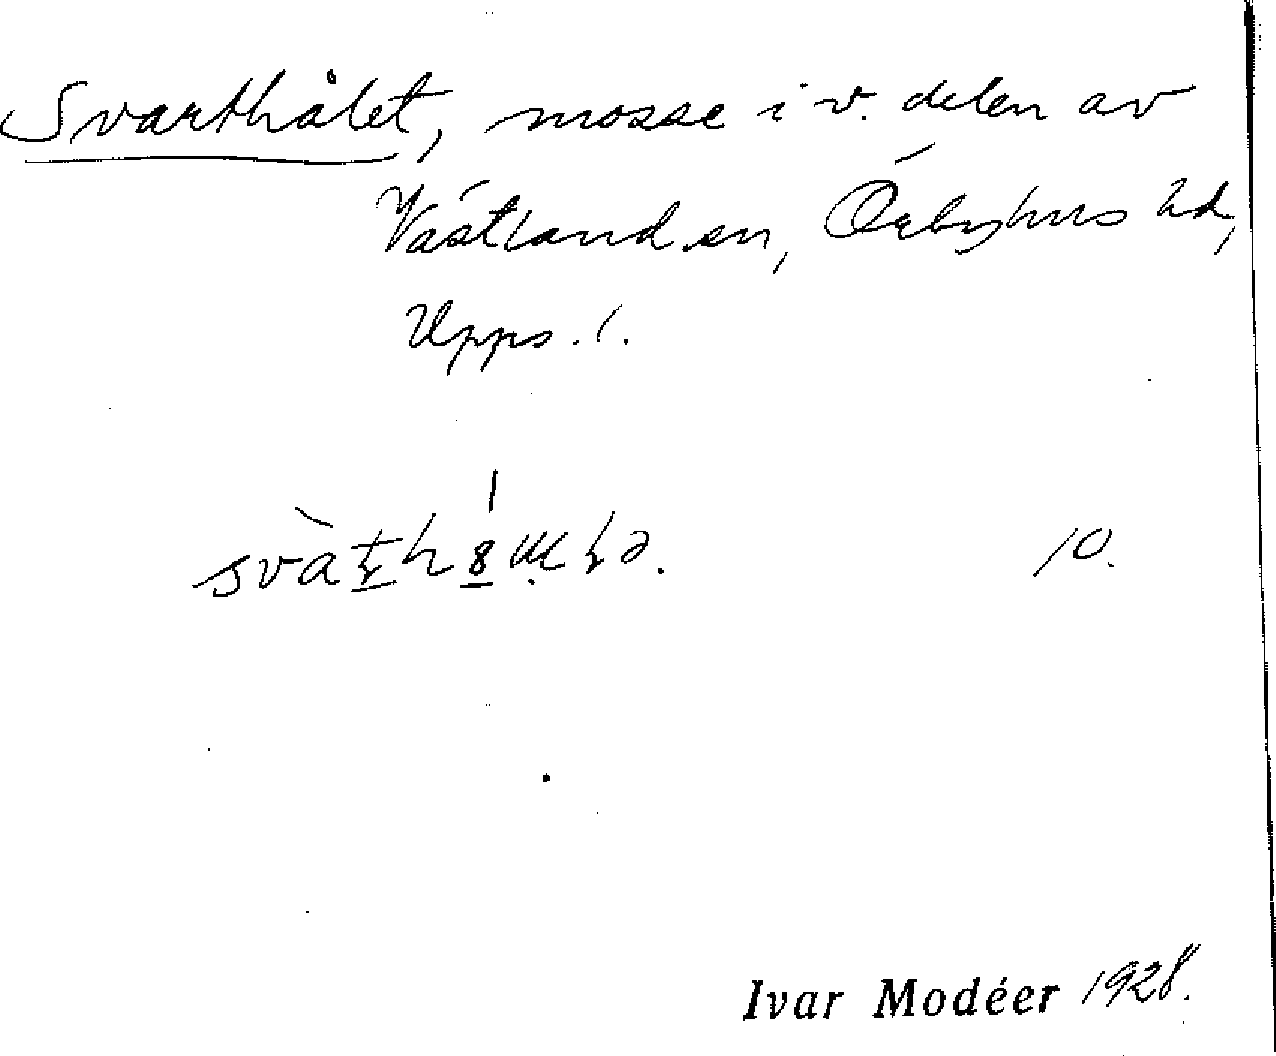 Svarthålet, mosse i v. delen av
Västland sn, Örbyhus hd,
Upps. l.
10.
Ivar Modéer 1928.